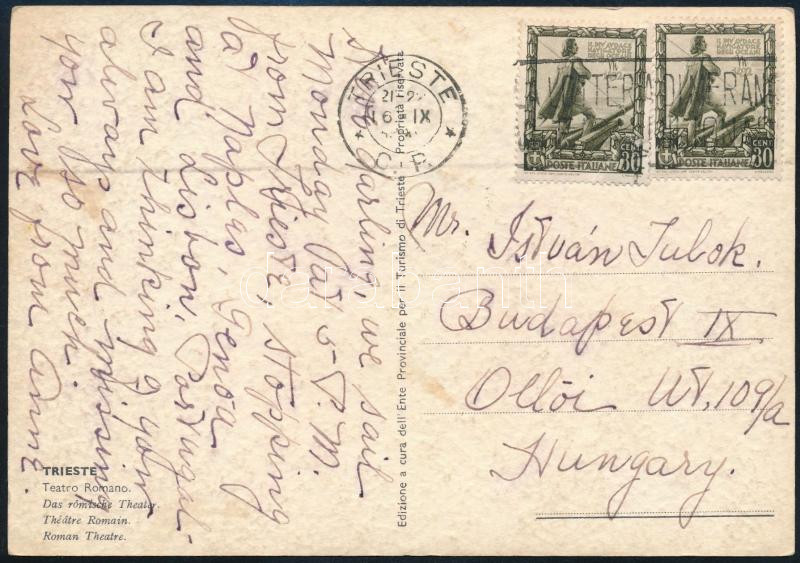 Darling, we sail
Monday at 5 P.M.
from Trieste, stopping
at Naples, Genoa
and Lisbon, Portugal
I am thinking of you
always and missing
you so much.
Love from Anne.
TRIESTE
Teatro Romano.
Das römische Theater.
Théâtre Romain.
Roman Theatre.
Edizione a cura dell'Ente Provinciale per il Turismo di Trieste - Proprietà riservata
TRIESTE
C-P.
IL PIU AUDACE
NAVIGATORE
DEGLI OCEANI
POSTE ITALIANE
CENT 30
IL PIU AUDACE
NAVIGATORE
DEGLI OCEANI
POSTE ITALIANE
CENT 30
Mr. István Tubok.
Budapest IX.
Ollöi Ut, 109/a
Hungary.
darabanth